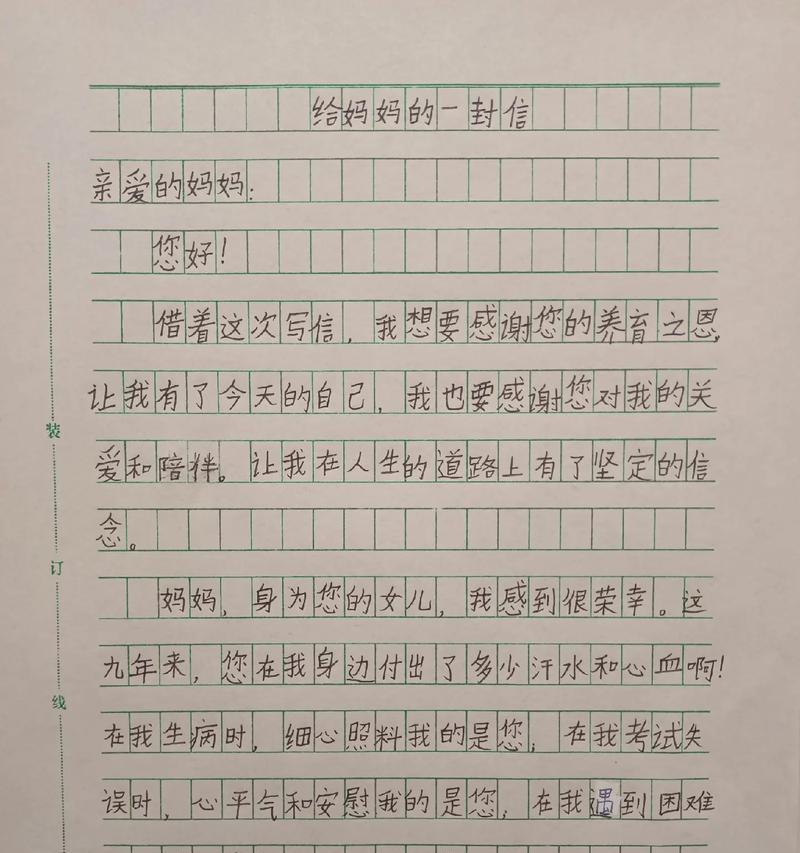 给妈妈的一封信
亲爱的妈妈:
您好!
借着这次写信,我想要感谢您的养育之恩,
让我有了今天的自己,我也要感谢您对我的关
爱和陪伴。让我在人生的道路上有了坚定的信
念。
妈妈,身为您的女儿,我感到很荣幸。这
九年来,您在我身边付出了多少汗水和心血啊!
在我生病时,细心照料我的是您;在我考试失
误时,心平气和安慰我的是您;在我遇到困难
装
订
线